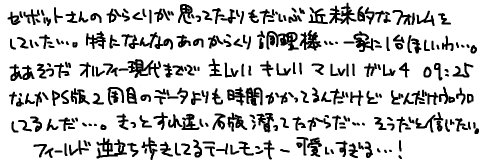 ゼボットさんのからくりが思ってたよりもだいぶ近未来的なフォルムを
していたい…。特になんなのあのからくり調理機…一家に1台ほしいわ…。
ああそうだ オルフィー現代まで 主Lv11 キLv11 マLv11 ガLv4 09:25
なんかPS版2周目のデータよりも時間がかかってるんだけど どんだけウロウロ
してるんだ…。きっとすれ違い石版で潜ってたからだ… そうだと信じたい。
フィールド逆立ち歩きしてるテールモンキー可愛いすぎる…!